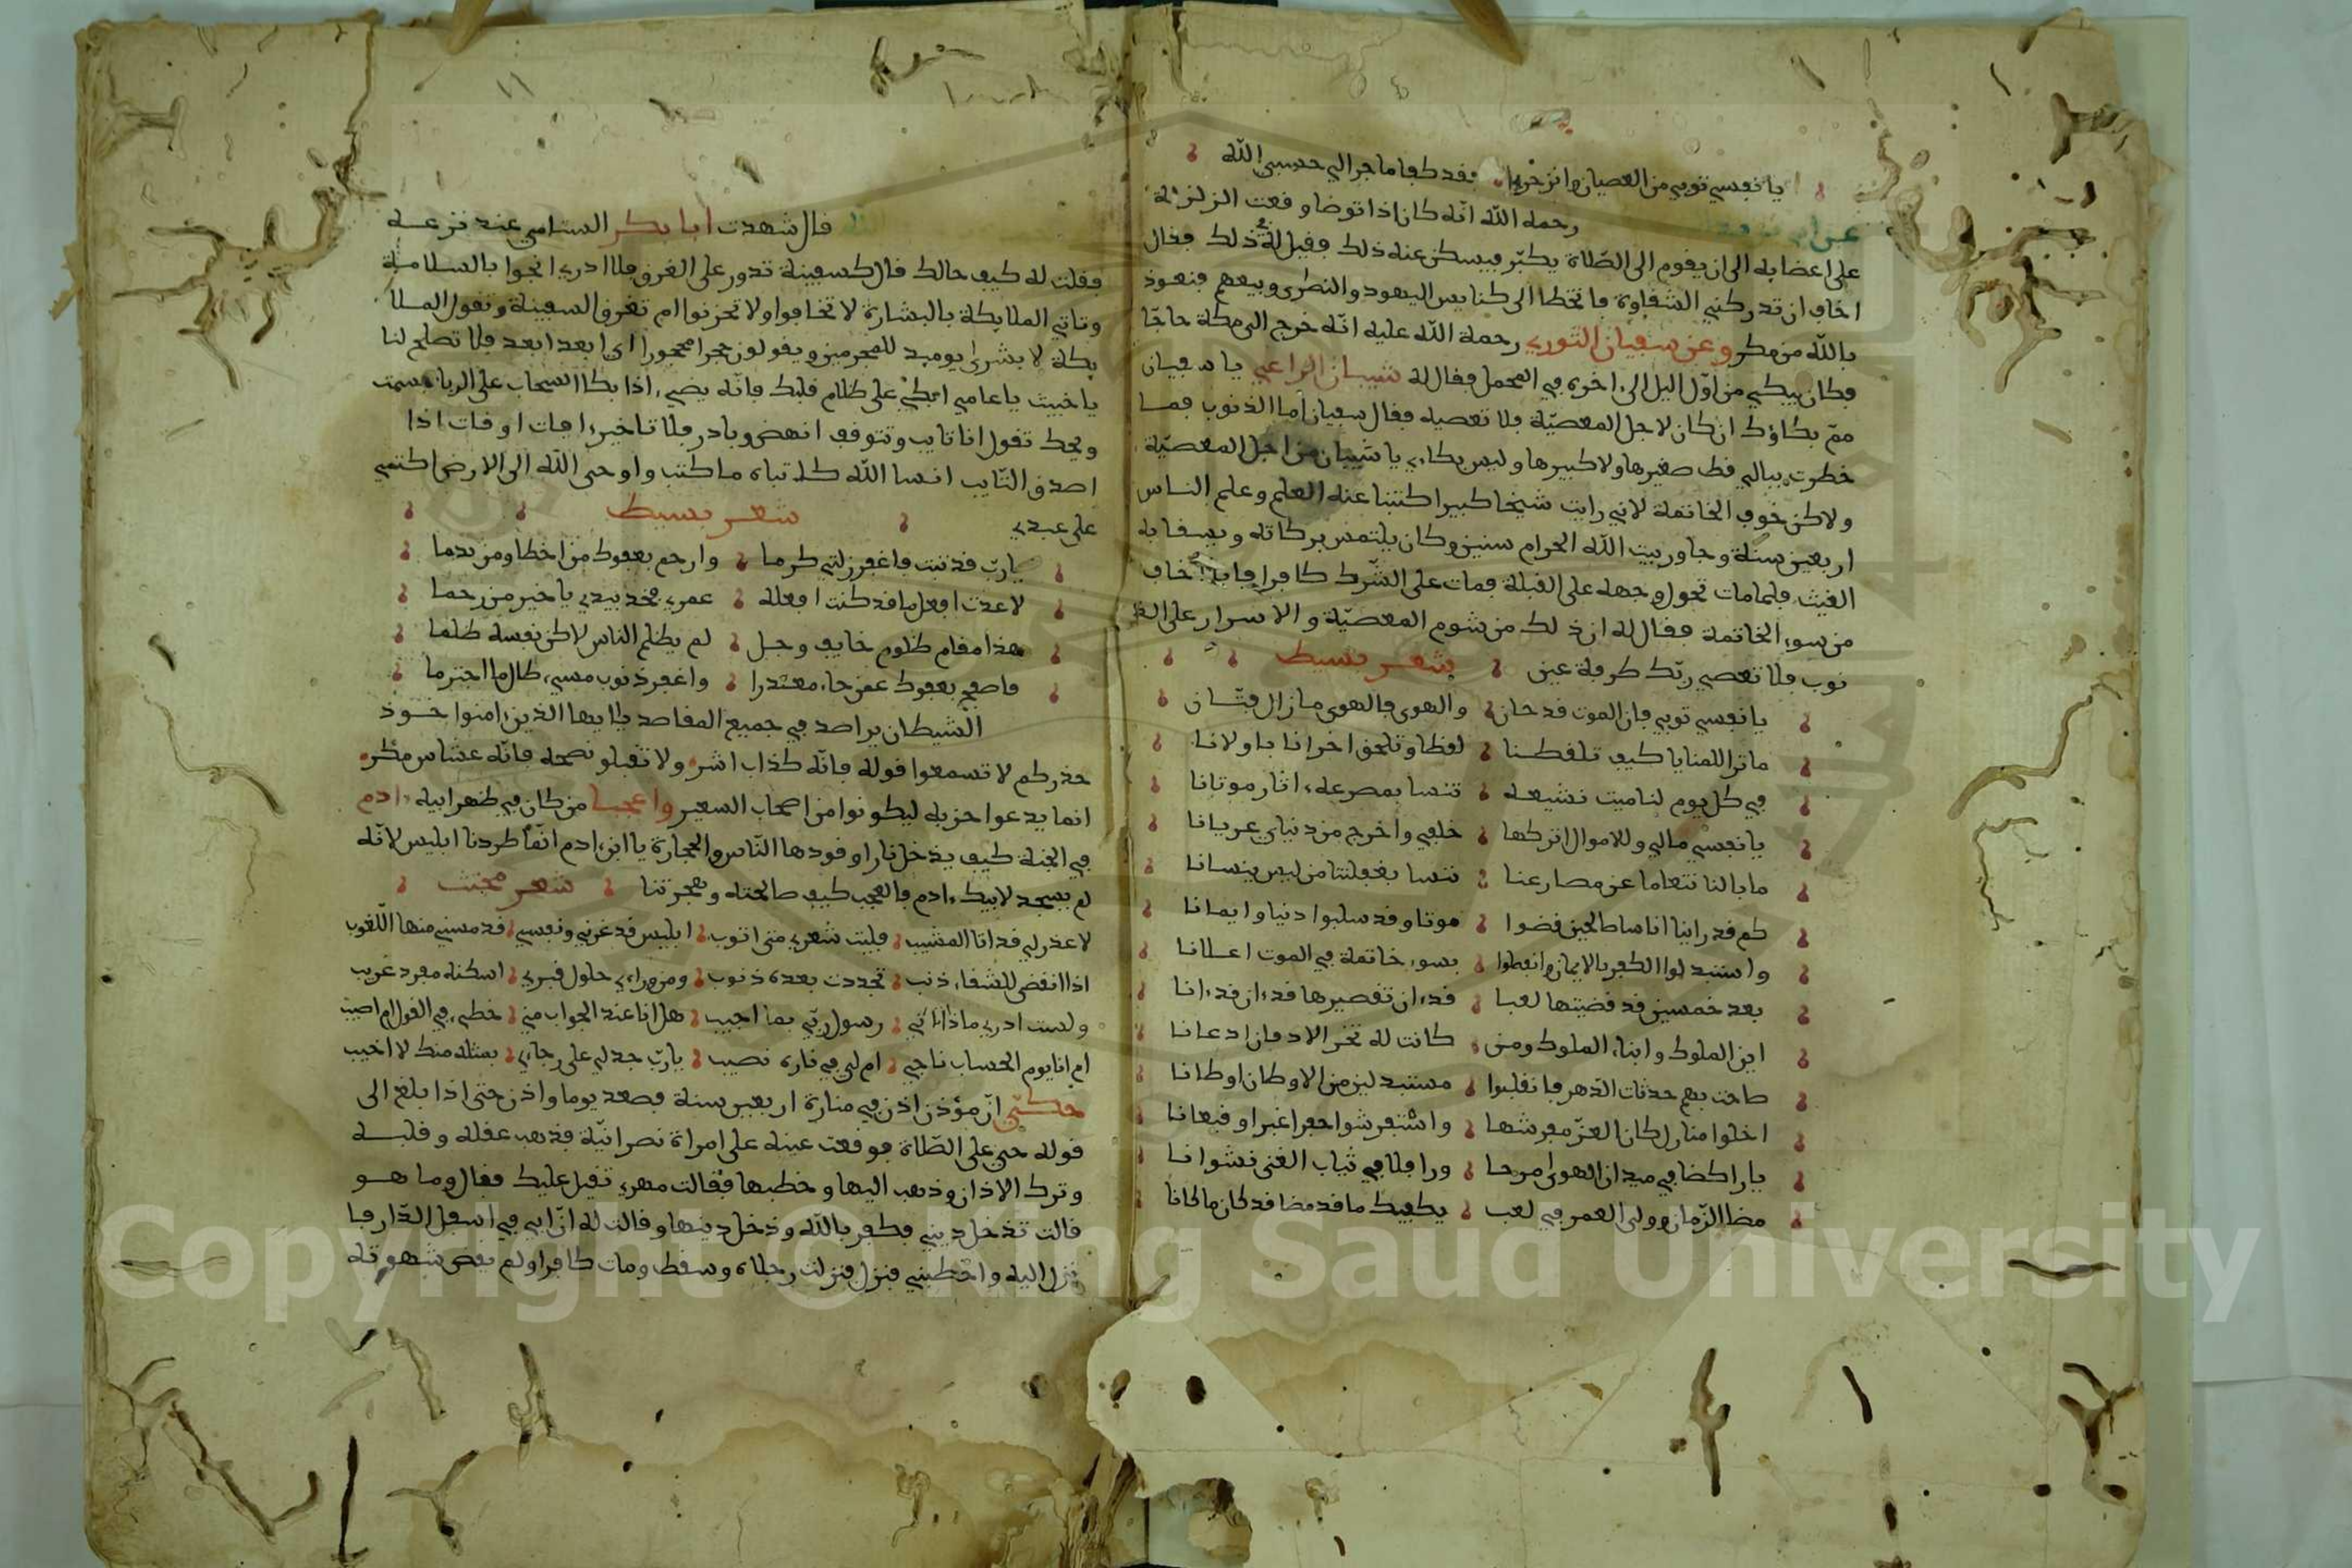 يا نفسي توبي من العصيان وانزجري فقد كفا ما جرا لي حسبي الله
رحمه الله انّه كان اذا توضا وقعت الزلزلة
على اعضايه الى ان يقوم الى الصّلاة يكبّر فيسكن عنه ذلك فقيل له في ذلك فقال
اخاف ان تدركني الشقاوة فاتخطا الى كنايس اليهود والنصرى وبيعهم فنعوذ
بالله من مكره وعن سفيان الثوري رحمة الله عليه انّه خرج الى مكة حاجّا
فكان يبكي من اوّل اليل الى اخره في المحمل فقال له شيبان الراعي يا سفيان
ممّ بكاؤك ان كان لاجل المعصيّة فلا تعصيه فقال سفيان اما الذنوب فما
خطرت ببالي قط صغيرها ولا كبيرها وليس بكاءي يا شيبان من اجل المعصيّة
ولاكن خوف الخاتمة لاني رايت شيخا كبيرا كتبنا عنه العلم وعلم الناس
اربعين سنة وجاور بيت الله الحرام سنين وكان يلتمس بركاته ويسقا به
الغيث فلما مات تحول وجهه على القبلة فمات على الشّرك كافرا فما اخاف
من سوء الخاتمة فقال له ان ذلك من شوم المعصيّة والاسرار على الذ
نوب فلا تعصي ربّك طرفة عين شعر بسيط
يا نفسي توبي فان الموت قد حان والهوى فالهوى ما زال فتّان
ما ترا المنايا كيف تلقطنا لقطا وتلحق اخرانا باولانا
في كل يوم لنا ميت نشيعه ننسا بمصرعه اثار موتانا
يا نفسي مالي وللاموال اتركها خلفي واخرج من دنياي عريانا
ما بالنا نتعاما عن مصارعنا ننسا بغفلتنا من ليس ينسانا
كم قد راينا اناسا صالحين قضوا موتا وقد سلبوا دنيا وايمانا
واستبدلوا الكفر بالايمان وانقطوا بسوء خاتمة في الموت اعلانا
بعد خمسين قد قضيتها لعبا قد ان تقصيرها قد ان قد انا
اين الملوك وابناء الملوك ومن كانت له تخر الاذقان اذعانا
صاحت بهم حدثات الدّهر فانقلبوا مستبدلين من الاوطان اوطانا
اخلوا منازل كان العزّ مفرشها واستفرشوا حفرا غبرا وقيعانا
يا راكضا في ميدان الهوى مرحا ورافلا في ثياب الغي نشوانا
مضا الزّمان وولى العمر في لعب يكفيك ما قد مضا قد كان ما كانا
قال شهدت ابا بكر السنامي عند نزعه
فقلت له كيف حالك قال كسفينة تدور على الغرق فلا ادري انجوا بالسلامة
وتاتي الملايكة بالبشارة لا تخافوا ولا تحزنوا ام تغرق السفينة وتقول الملا
يكة لا بشرى يوميد للمجرمين ويقولون حجرا محجورا اي ابعد ابعد فلا تصلح لنا
يا خبيث يا عاصي ابك على ظلام قلبك فانّه يضيء اذا بكا السحاب على الربا تبسمت
ويحك تقول انا تايب وتتوقف انهض وبادر فلا تاخير افات اوفات اذا
اصدق التّايب انسا الله كاتباه ما كتب واوحى الله الى الارض اكتمي
على عبدي شعر بسيط
يا ربّ قد تبت فاغفر زلتي كرما وارحم بعفوك من اخطا ومن ندما
لا عدت افعل ما قد كنت افعله عمري فخد بيدي يا خير من رحما
هذا مقام ظلوم خايف وجل لم يظلم الناس لاكن نفسه ظلما
فاصفح بعفوك عمن جاء معتدرا واغفر ذنوب مسيء طال ما اجترما
الشيطان يراصد في جميع المقاصد يا ايها الذين امنوا خذوا
حذركم لا تسمعوا قوله فانّه كذاب اشر ولا تقبلو نصحه فانّه غشاش مكره
انما يدعوا حزبه ليكونوا من اصحاب السعير واعجبا من كان في ظهر ابيه ادم
في الجنة كيف يدخل نارا وقودها النّاس والحجارة يا ابن ادم انّما طردنا ابليس لانّه
لم يسجد لابيك ادم فالعجب كيف صالحته وهجرتنا شعر مجتث
لا عذر لي قد اتا المشيب فليت شعري متى اتوب ابليس قد غرني ونفسي قد مسني منها اللّغوب
اذا انقضى للشقاء ذنب تجددت بعده ذنوب ومن وراءي حلول قبري اسكنه مفرد غريب
ولست ادري ماذا اتاني رسول ربّي بما اجيب هل انا عند الجواب مني خطيء في القول ام اصيب
ام انا يوم الحساب ناجي ام لي في ناره نصيب يا ربّ جد لي على رجاءي بمثله منك لا اخيب
حكي انّ مؤذن اذن في منارة اربعين سنة فصعد يوما واذن حتى اذا بلغ الى
قوله حي على الصّلاة فوقعت عينه على امراة نصرانيّة فذهب عقله وقلبه
وترك الاذان وذهب اليها وخطبها فقالت مهري ثقيل عليك فقال وما هو
قالت تدخل ديني فكفر بالله ودخل دينها وقالت له انّ ابي في اسفل الدّار فا
نزل اليه واخطبني فنزل فنزلت رجلاه وسقط ومات كافرا ولم يقض شهوته
Copyright © King Saud University